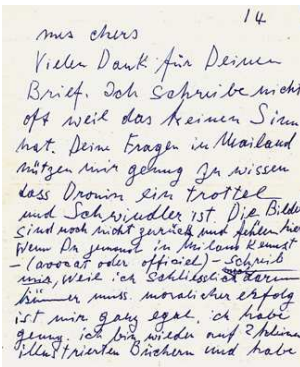 14
mes chers
Vielen Dank für Deinen
Brief. Ich schreibe nicht
oft weil das keinen Sinn
hat. Deine Fragen in Mailand
nützen mir genug zu wissen
dass Drouin ein trottel
und Schwindler ist. Die Bilder
sind noch nicht zurück und fehlen hier
Wenn Du jemand in Milano kennst
- (avocat oder officiel) - schreib
mir, weil ich schliesslich
muss. moralischer erfolg
ist mir ganz egal. ich habe
genug. ich bin wieder auf 2 kleinen
illustrierten Büchern und habe